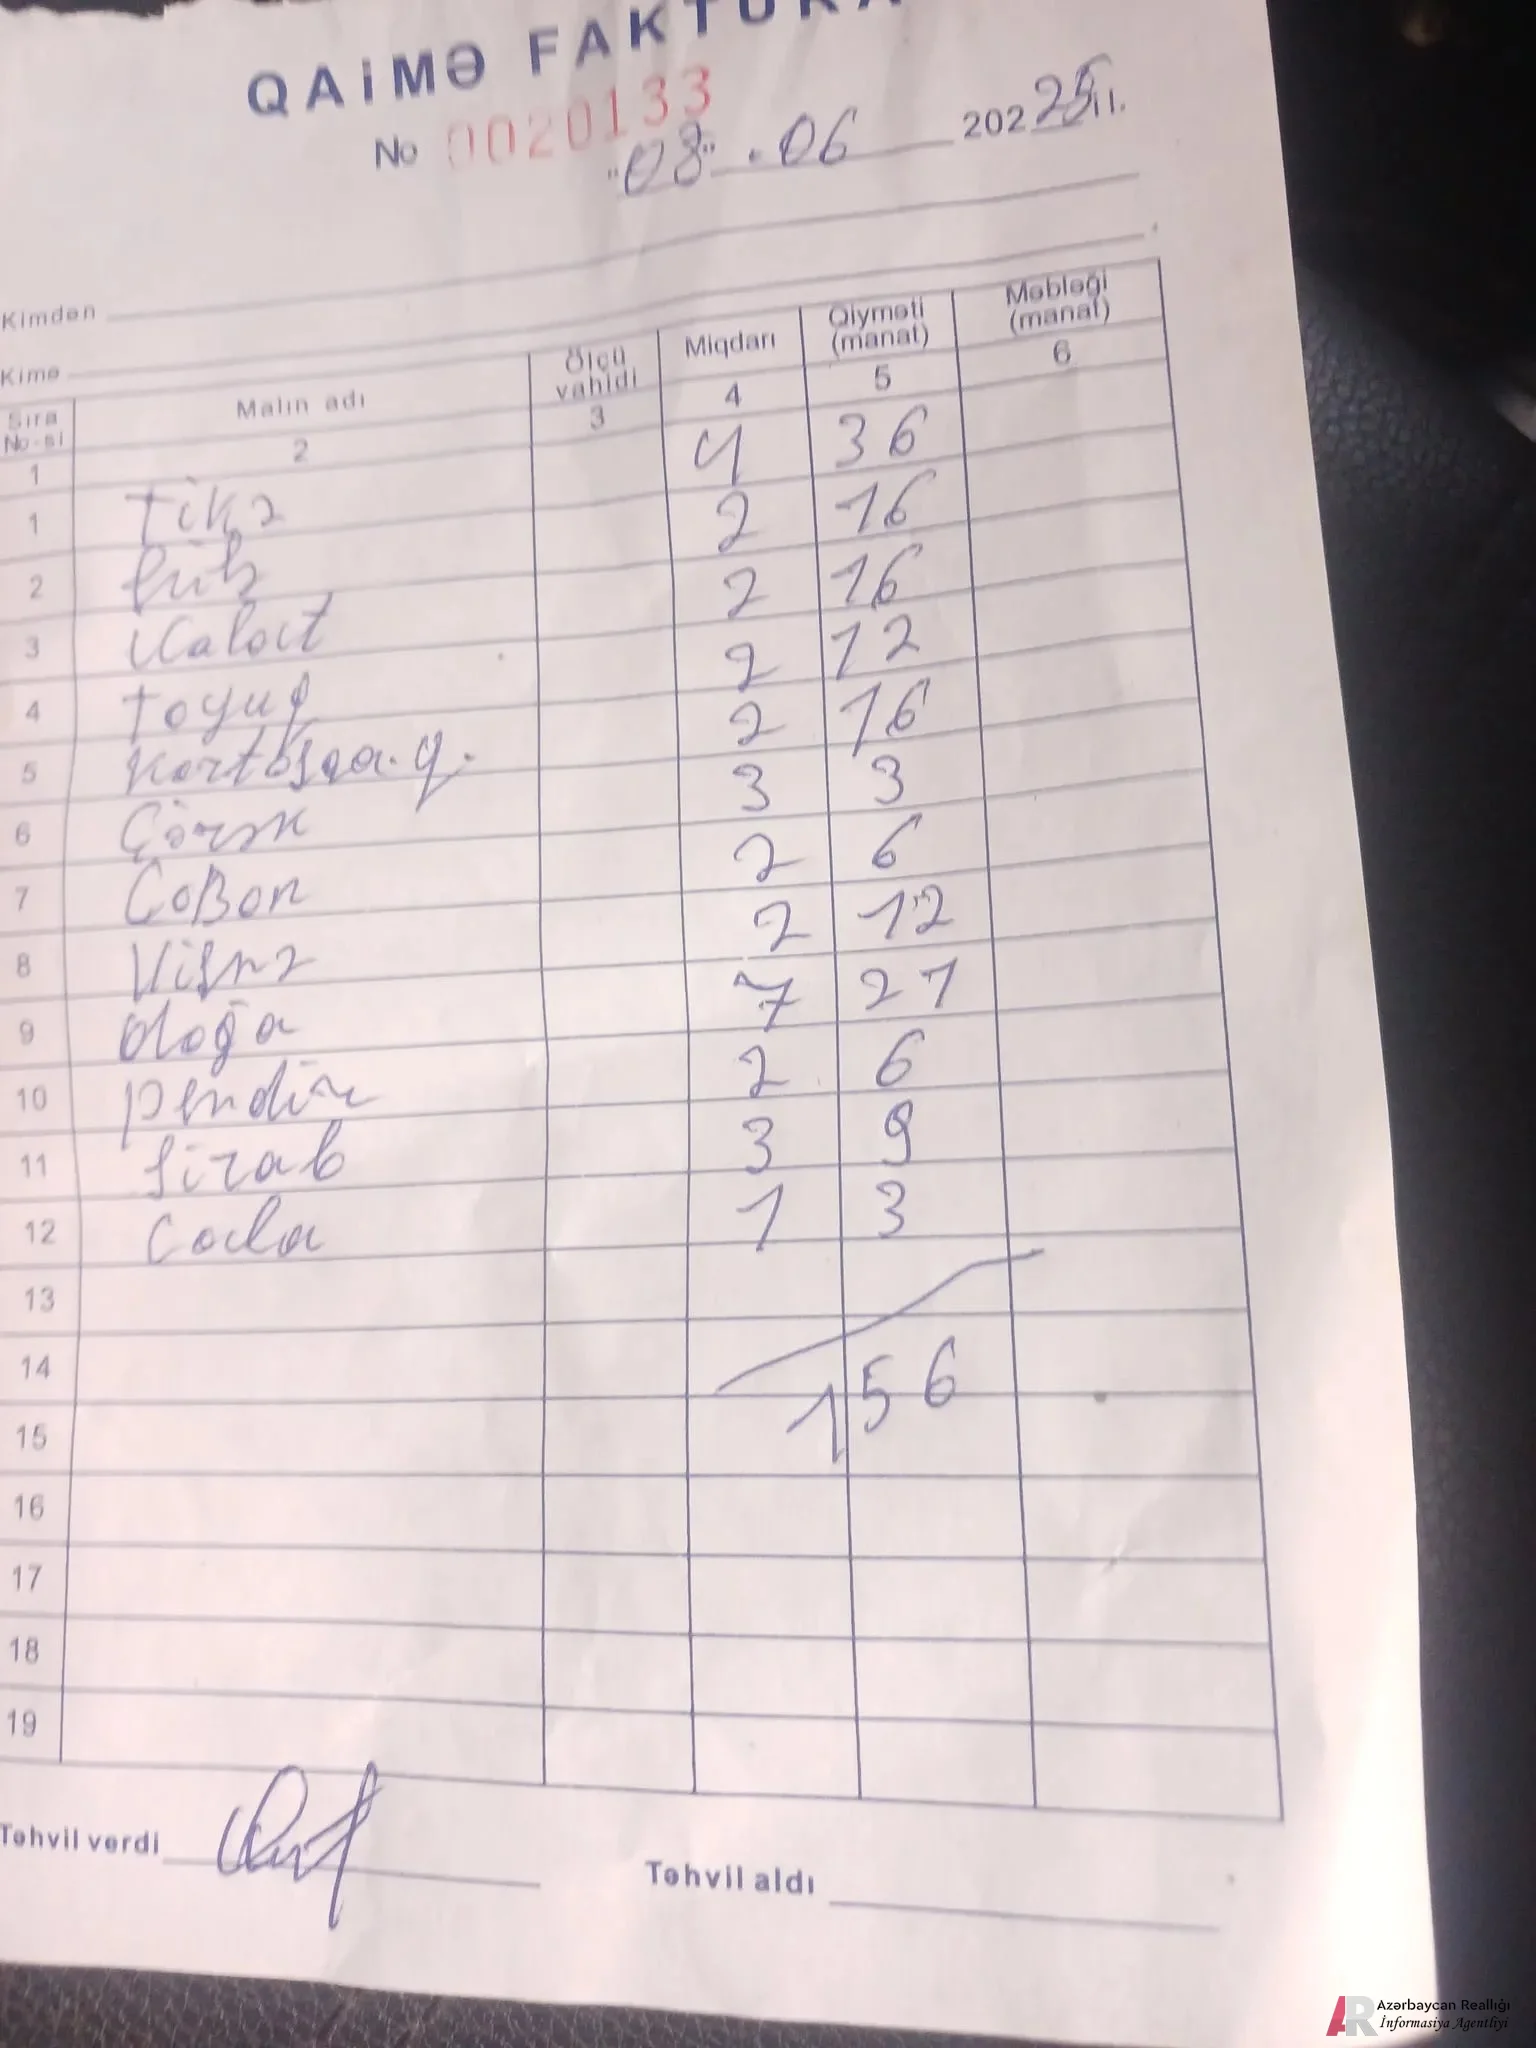 QAİMƏ FAKTURA
No 0020133
"08" . 06 202 25 il.
Kimdən
Kimə
Sıra No-si Malın adı Ölçü vahidi Miqdarı Qiyməti (manat) Məbləği (manat)
1 2 3 4 5 6
1 Tikə 4 36
2 2 16
3 2 16
4 toyuq 2 12
5 2 16
6 Çörək 3 3
7 ÇoBan 2 6
8 Vişnə 2 12
9 dloğa 7 21
10 pendir 2 6
11 Sirab 3 9
12 Cocla 1 3
13
14
156
15
16
17
18
19
Təhvil verdi
Təhvil aldı
AR Azərbaycan Reallığı
İnformasiya Agentliyi